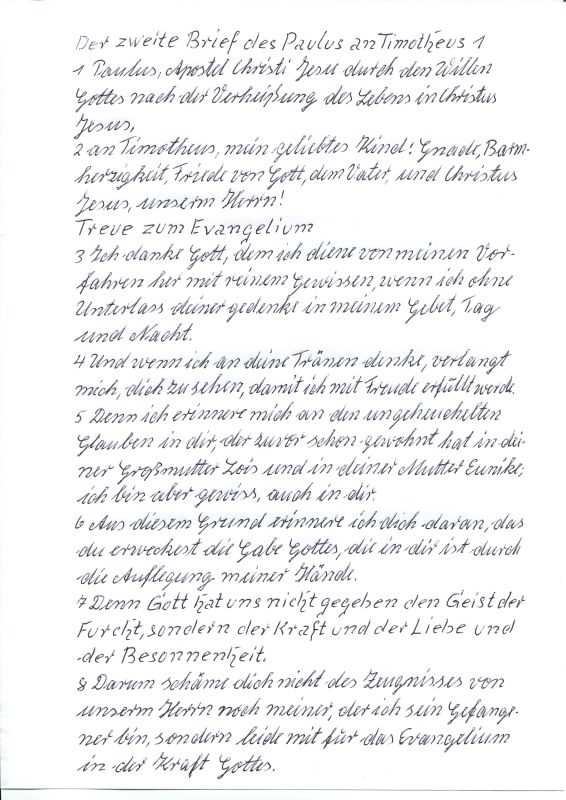 Der zweite Brief des Paulus an Timotheus 1
1 Paulus, Apostel Christi Jesu durch den Willen
Gottes nach der Verheißung des Lebens in Christus
Jesus,
2 an Timotheus, mein geliebtes Kind! Gnade, Barm-
herzigkeit, Friede von Gott, dem Vater, und Christus
Jesus, unserm Herrn!
Treue zum Evangelium
3 Ich danke Gott, dem ich diene von meinen Vor-
fahren her mit reinem Gewissen, wenn ich ohne
Unterlass deiner gedenke in meinem Gebet, Tag
und Nacht.
4 Und wenn ich an deine Tränen denke, verlangt
mich, dich zu sehen, damit ich mit Freude erfüllt werde.
5 Denn ich erinnere mich an den ungeheuchelten
Glauben in dir, der zuvor schon gewohnt hat in dei-
ner Großmutter Lois und in deiner Mutter Eunike;
ich bin aber gewiss, auch in dir.
6 Aus diesem Grund erinnere ich dich daran, das
du erweckest die Gabe Gottes, die in dir ist durch
die Auflegung meiner Hände.
7 Denn Gott hat uns nicht gegeben den Geist der
Furcht, sondern der Kraft und der Liebe und
der Besonnenheit.
8 Darum schäme dich nicht des Zeugnisses von
unserm Herrn noch meiner, der ich sein Gefange-
ner bin, sondern leide mit für das Evangelium
in der Kraft Gottes.